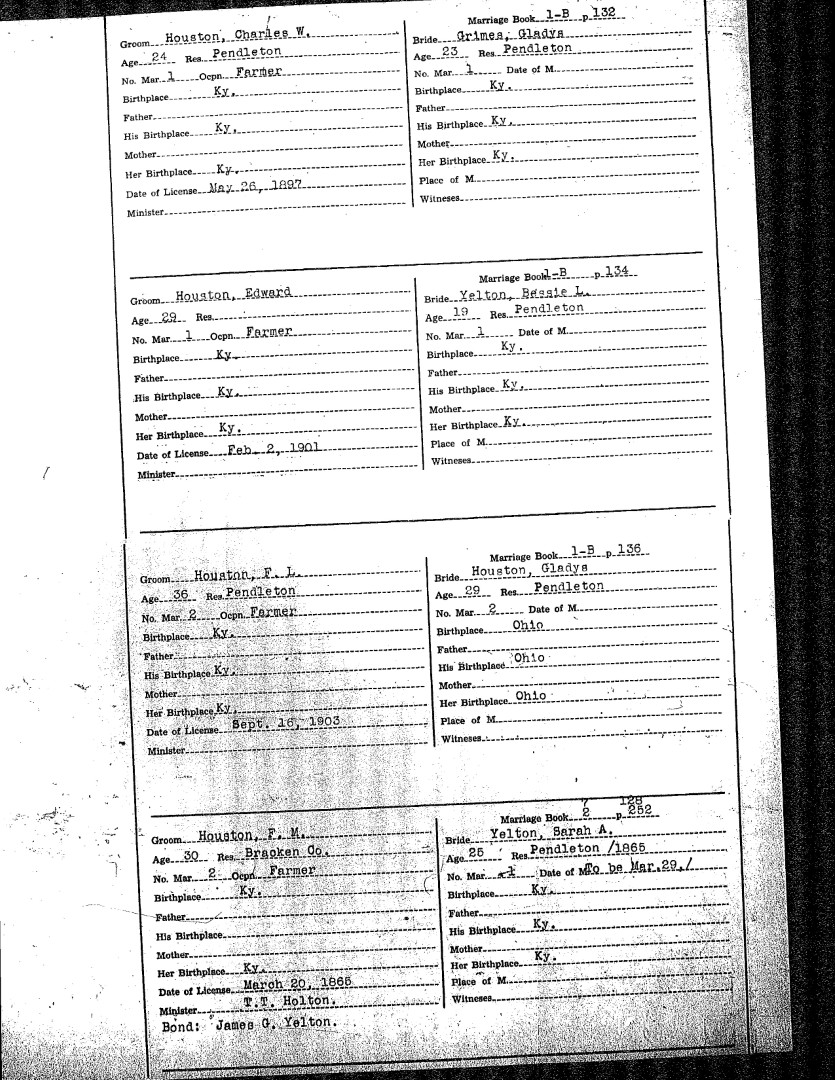 Marriage Book 1-B p 132
Groom Houston, Charles W.
Age 24 Res. Pendleton
No. Mar. 1 Ocpn. Farmer
Birthplace Ky.
Father
His Birthplace Ky.
Mother
Her Birthplace Ky.
Date of License May 26, 1897
Minister
Bride Grimes, Gladys
Age 23 Res. Pendleton
No. Mar. 1 Date of M.
Birthplace Ky.
Father
His Birthplace Ky.
Mother
Her Birthplace Ky.
Place of M.
Witneses
Marriage Book 1-B p 134
Groom Houston, Edward
Age 29 Res.
No. Mar. 1 Ocpn. Farmer
Birthplace Ky.
Father
His Birthplace Ky.
Mother
Her Birthplace Ky.
Date of License Feb. 2, 1901
Minister
Bride Yelton, Bessie L.
Age 19 Res. Pendleton
No. Mar. 1 Date of M.
Birthplace Ky.
Father
His Birthplace Ky.
Mother
Her Birthplace Ky.
Place of M.
Witneses
Marriage Book 1-B p. 136
Groom Houston, F. L.
Age 36 Res. Pendleton
No. Mar. 2 Ocpn. Farmer
Birthplace Ky.
Father
His Birthplace Ky.
Mother
Her Birthplace Ky.
Date of License Sept. 16, 1903
Minister
Bride Houston, Gladys
Age 29 Res. Pendleton
No. Mar. 2 Date of M.
Birthplace Ohio
Father
His Birthplace Ohio
Mother
Her Birthplace Ohio
Place of M.
Witneses
7 128
Marriage Book 2 p. 252
Groom Houston, F. M.
Age 30 Res. Bracken Co.
No. Mar. 2 Ocpn. Farmer
Birthplace Ky.
Father
His Birthplace
Mother
Her Birthplace Ky.
Date of License March 20, 1865
Minister T.T. Holton.
Bond: James G. Yelton.
Bride Yelton, Sarah A.
Age 25 Res. Pendleton /1865
No. Mar. 1 Date of M. To be Mar. 29,/
Birthplace Ky.
Father
His Birthplace Ky.
Mother
Her Birthplace Ky.
Place of M.
Witneses